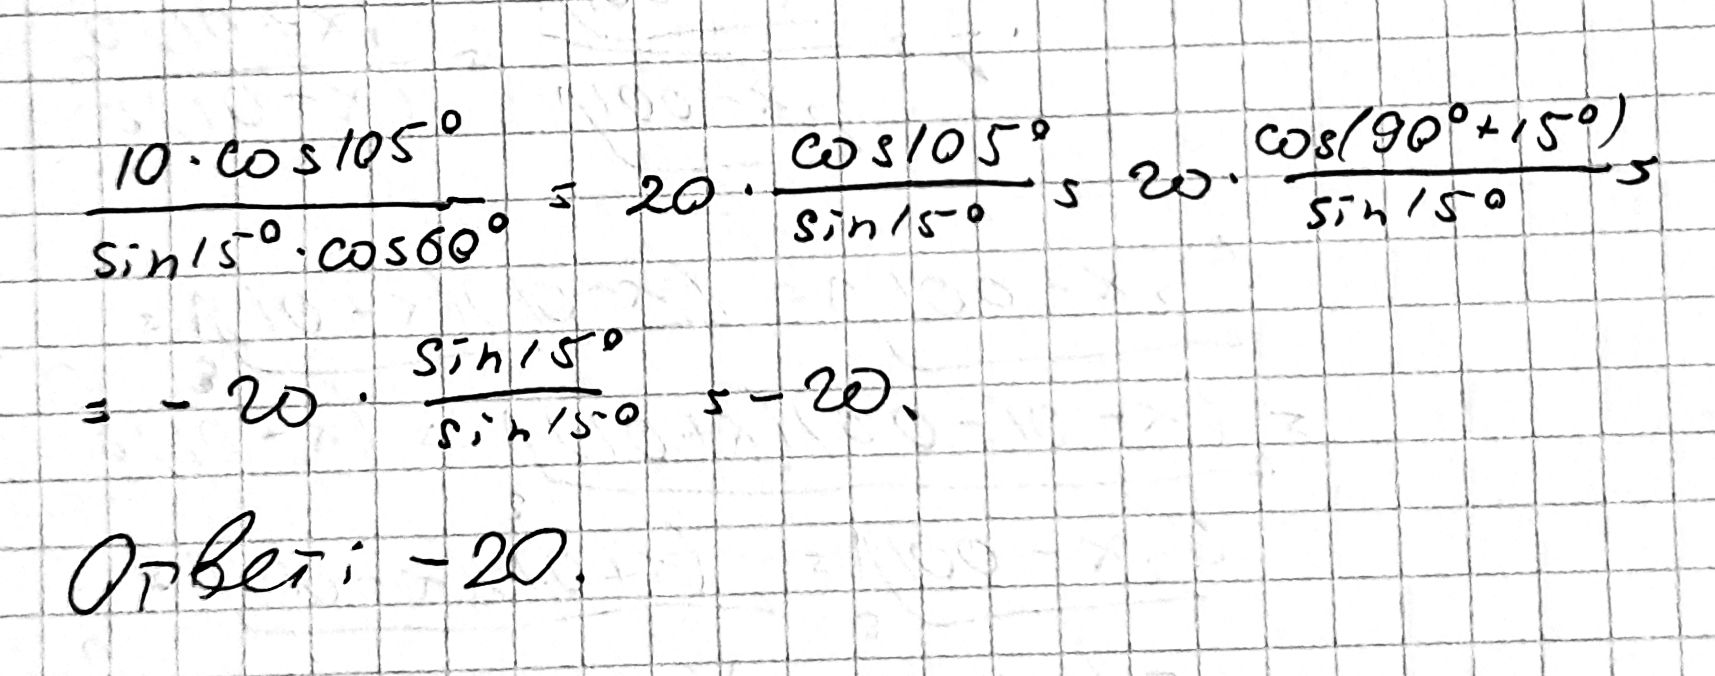 (10·cos105°)/(sin15°·cos60°) = 20·(cos105°)/(sin15°) = 20·(cos(90°+15°))/(sin15°) =
= -20·(sin15°)/(sin15°) = -20.
Ответ: -20.